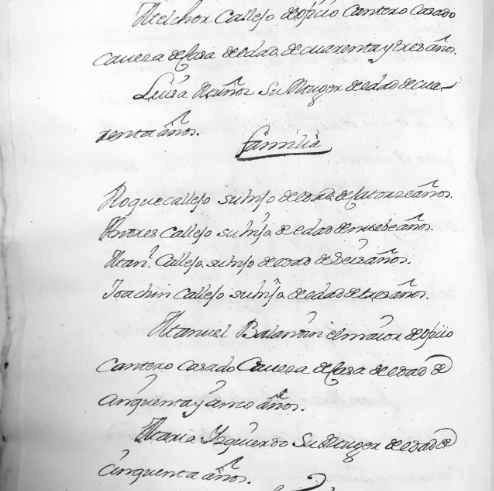 Melchor Callejo de ofício Cantero Casado
Cavesa de Casa de edad de cuarenta y tres años.
Luisa Muñoz Su Muger de edad de cua-
renta años.
Familia
Roque Callejo su hijo de edad de Catorze años.
Andres Callejo su hijo de edad de nuebe años.
Man.l Callejo su hijo de edad de seis años.
Joachin Callejo su hijo de edad de tres años.
Manuel el maior de ofício
Cantero Casado Cavesa de Casa de edad de
Cinquenta y cinco años.
Maria Izquierdo Su Muger de edad de
Cinquenta años.